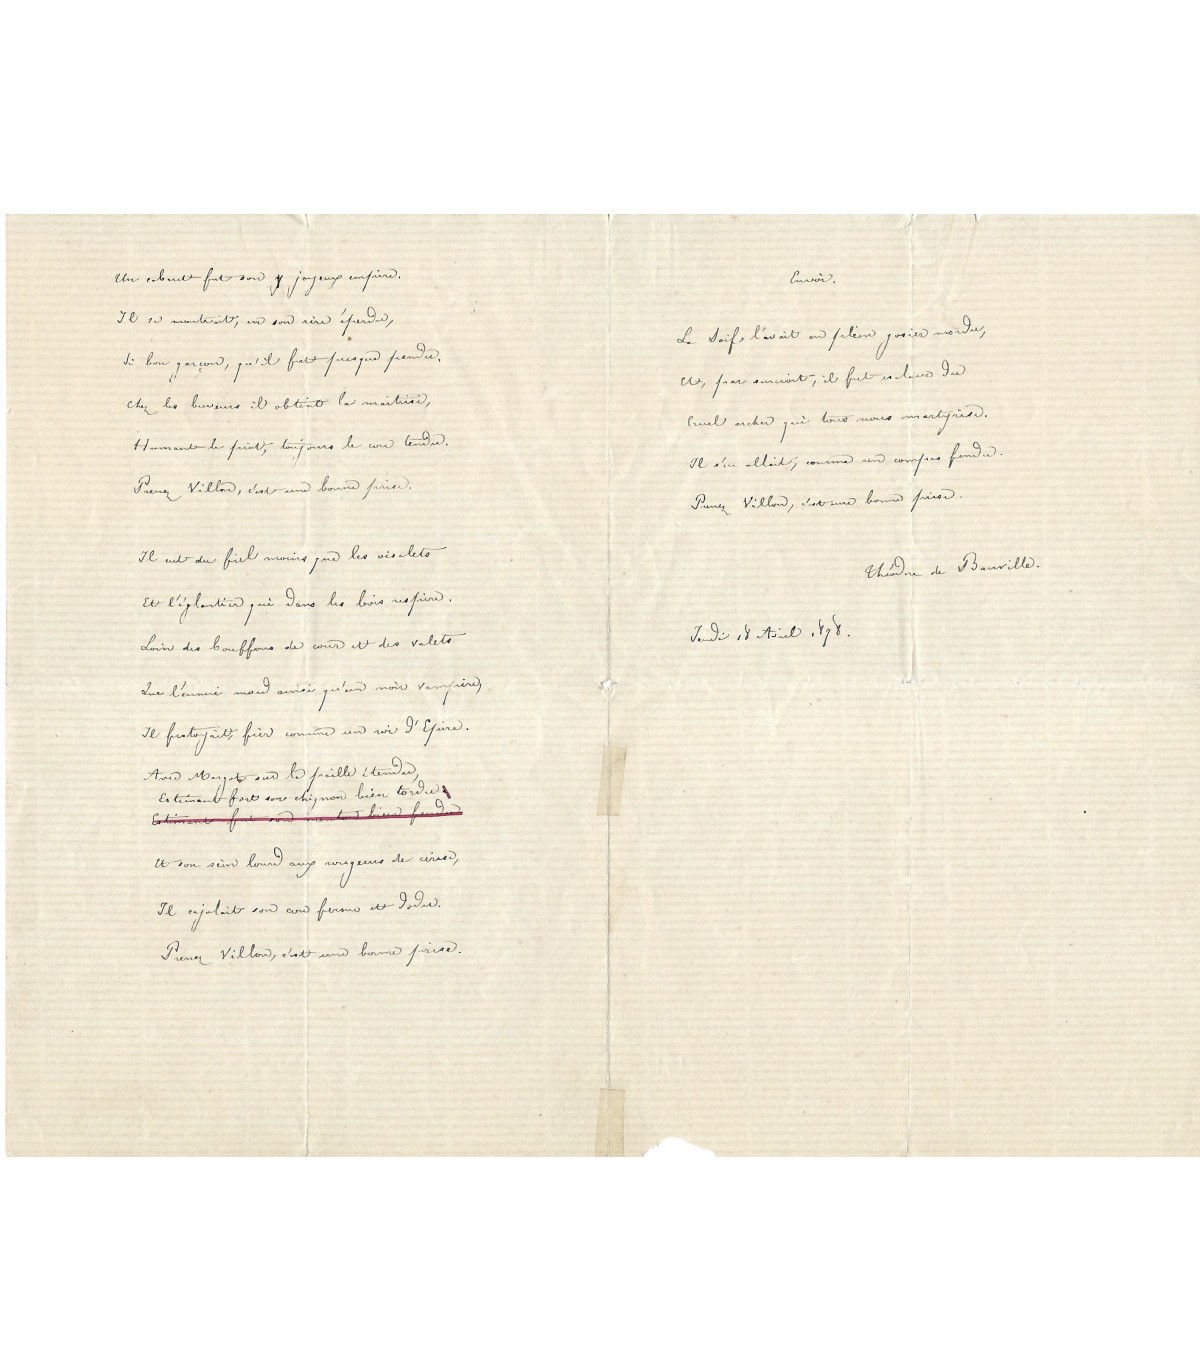 Un cabaret fut son joyeux empire.
Il se montrait, en son rire éperdu,
Si bon garçon, qu'il fut presque pendu.
Chez les buveurs il obtint la maîtrise,
Humant le piot, toujours le cou tendu.
Prenez Villon, c'est une bonne prise.
Il eut du fiel moins que les oiselets
Et l'églantier qui dans les bois respire.
Loin des bouffons de cour et des valets
Que l'ennui mord ainsi qu'un noir vampire,
Il festoyait, fier comme un roi d'Epire.
Avec Margot sur la paille étendu,
Estimant fort son chignon bien tordu
Estimant fort son menton bien fendu
Et son sein lourd aux rougeurs de cerise,
Il cajolait son cou ferme et dodu.
Prenez Villon, c'est une bonne prise.
Envoi.
La Soif l'avait en plein gosier mordu,
Et, par surcroît, il fut esclave du
Cruel archer qui tous nous martyrise.
Il s'en allait, comme un compas fendu.
Prenez Villon, c'est une bonne prise.
Théodore de Banville.
Jeudi 18 Avril 1878.